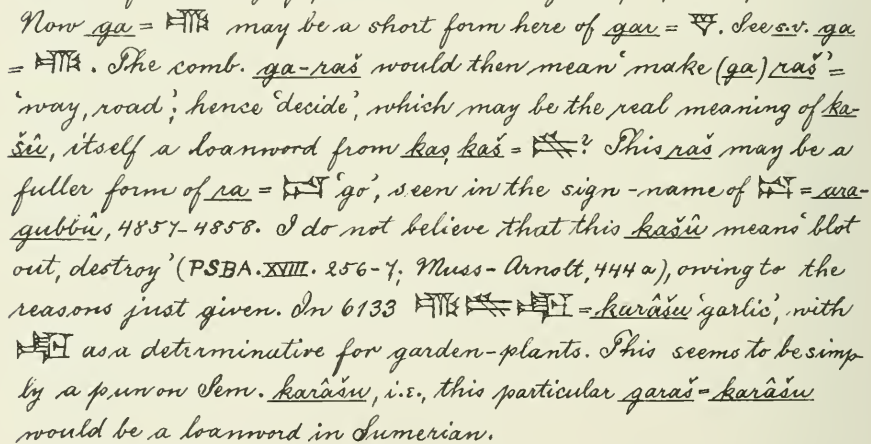 Now ga = 𒂵 may be a short form here of gar = 𒃻. See s.v. ga
= 𒂵. The comb. ga-raš would then mean 'make (ga) raš' =
'way, road'; hence 'decide', which may be the real meaning of ka-
šû, itself a loanword from kas, kaš = 𒆜? This raš may be a
fuller form of ra = 'go', seen in the sign-name of = ara-
gubbû, 4857-4858. I do not believe that this kašû means 'blot
out, destroy' (PSBA. XVIII. 256-7; Muss-Arnolt, 444 a), owing to the
reasons just given. In 6133 𒂵 𒆜 𒊬 = karâšu 'garlic', with
𒊬 as a determinative for garden-plants. This seems to be simp-
ly a pun on Sem. karâšu, i.e., this particular garaš = karâšu
would be a loanword in Sumerian.